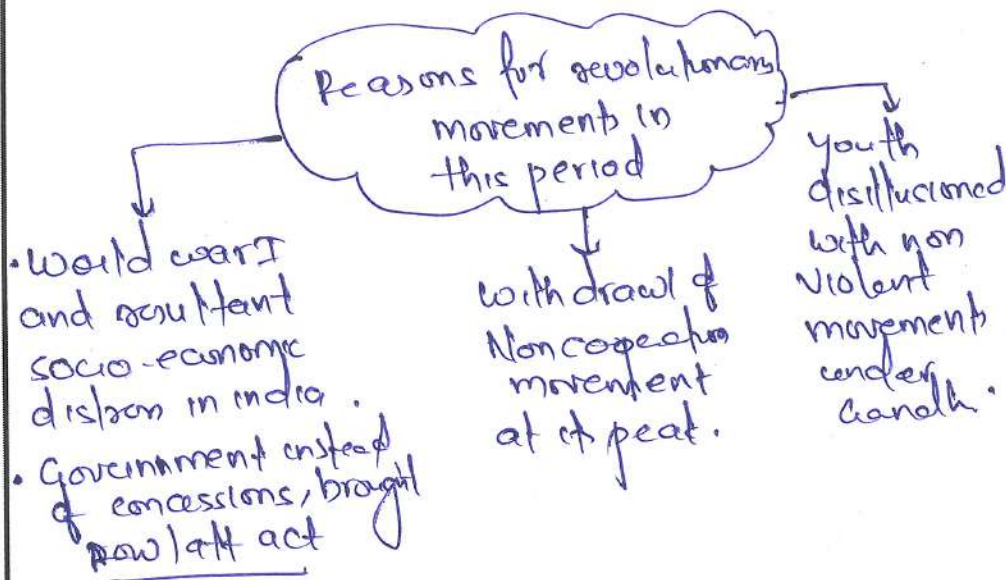 Reasons for revolutionary
movements in
this period
• World war I
and resultant
socio-economic
distress in india.
• Government instead
of concessions, brought
Rowlatt act
withdrawl of
Noncooperation
movement
at its peak.
youth
disillusioned
with non
violent
movements
under
Gandhi.